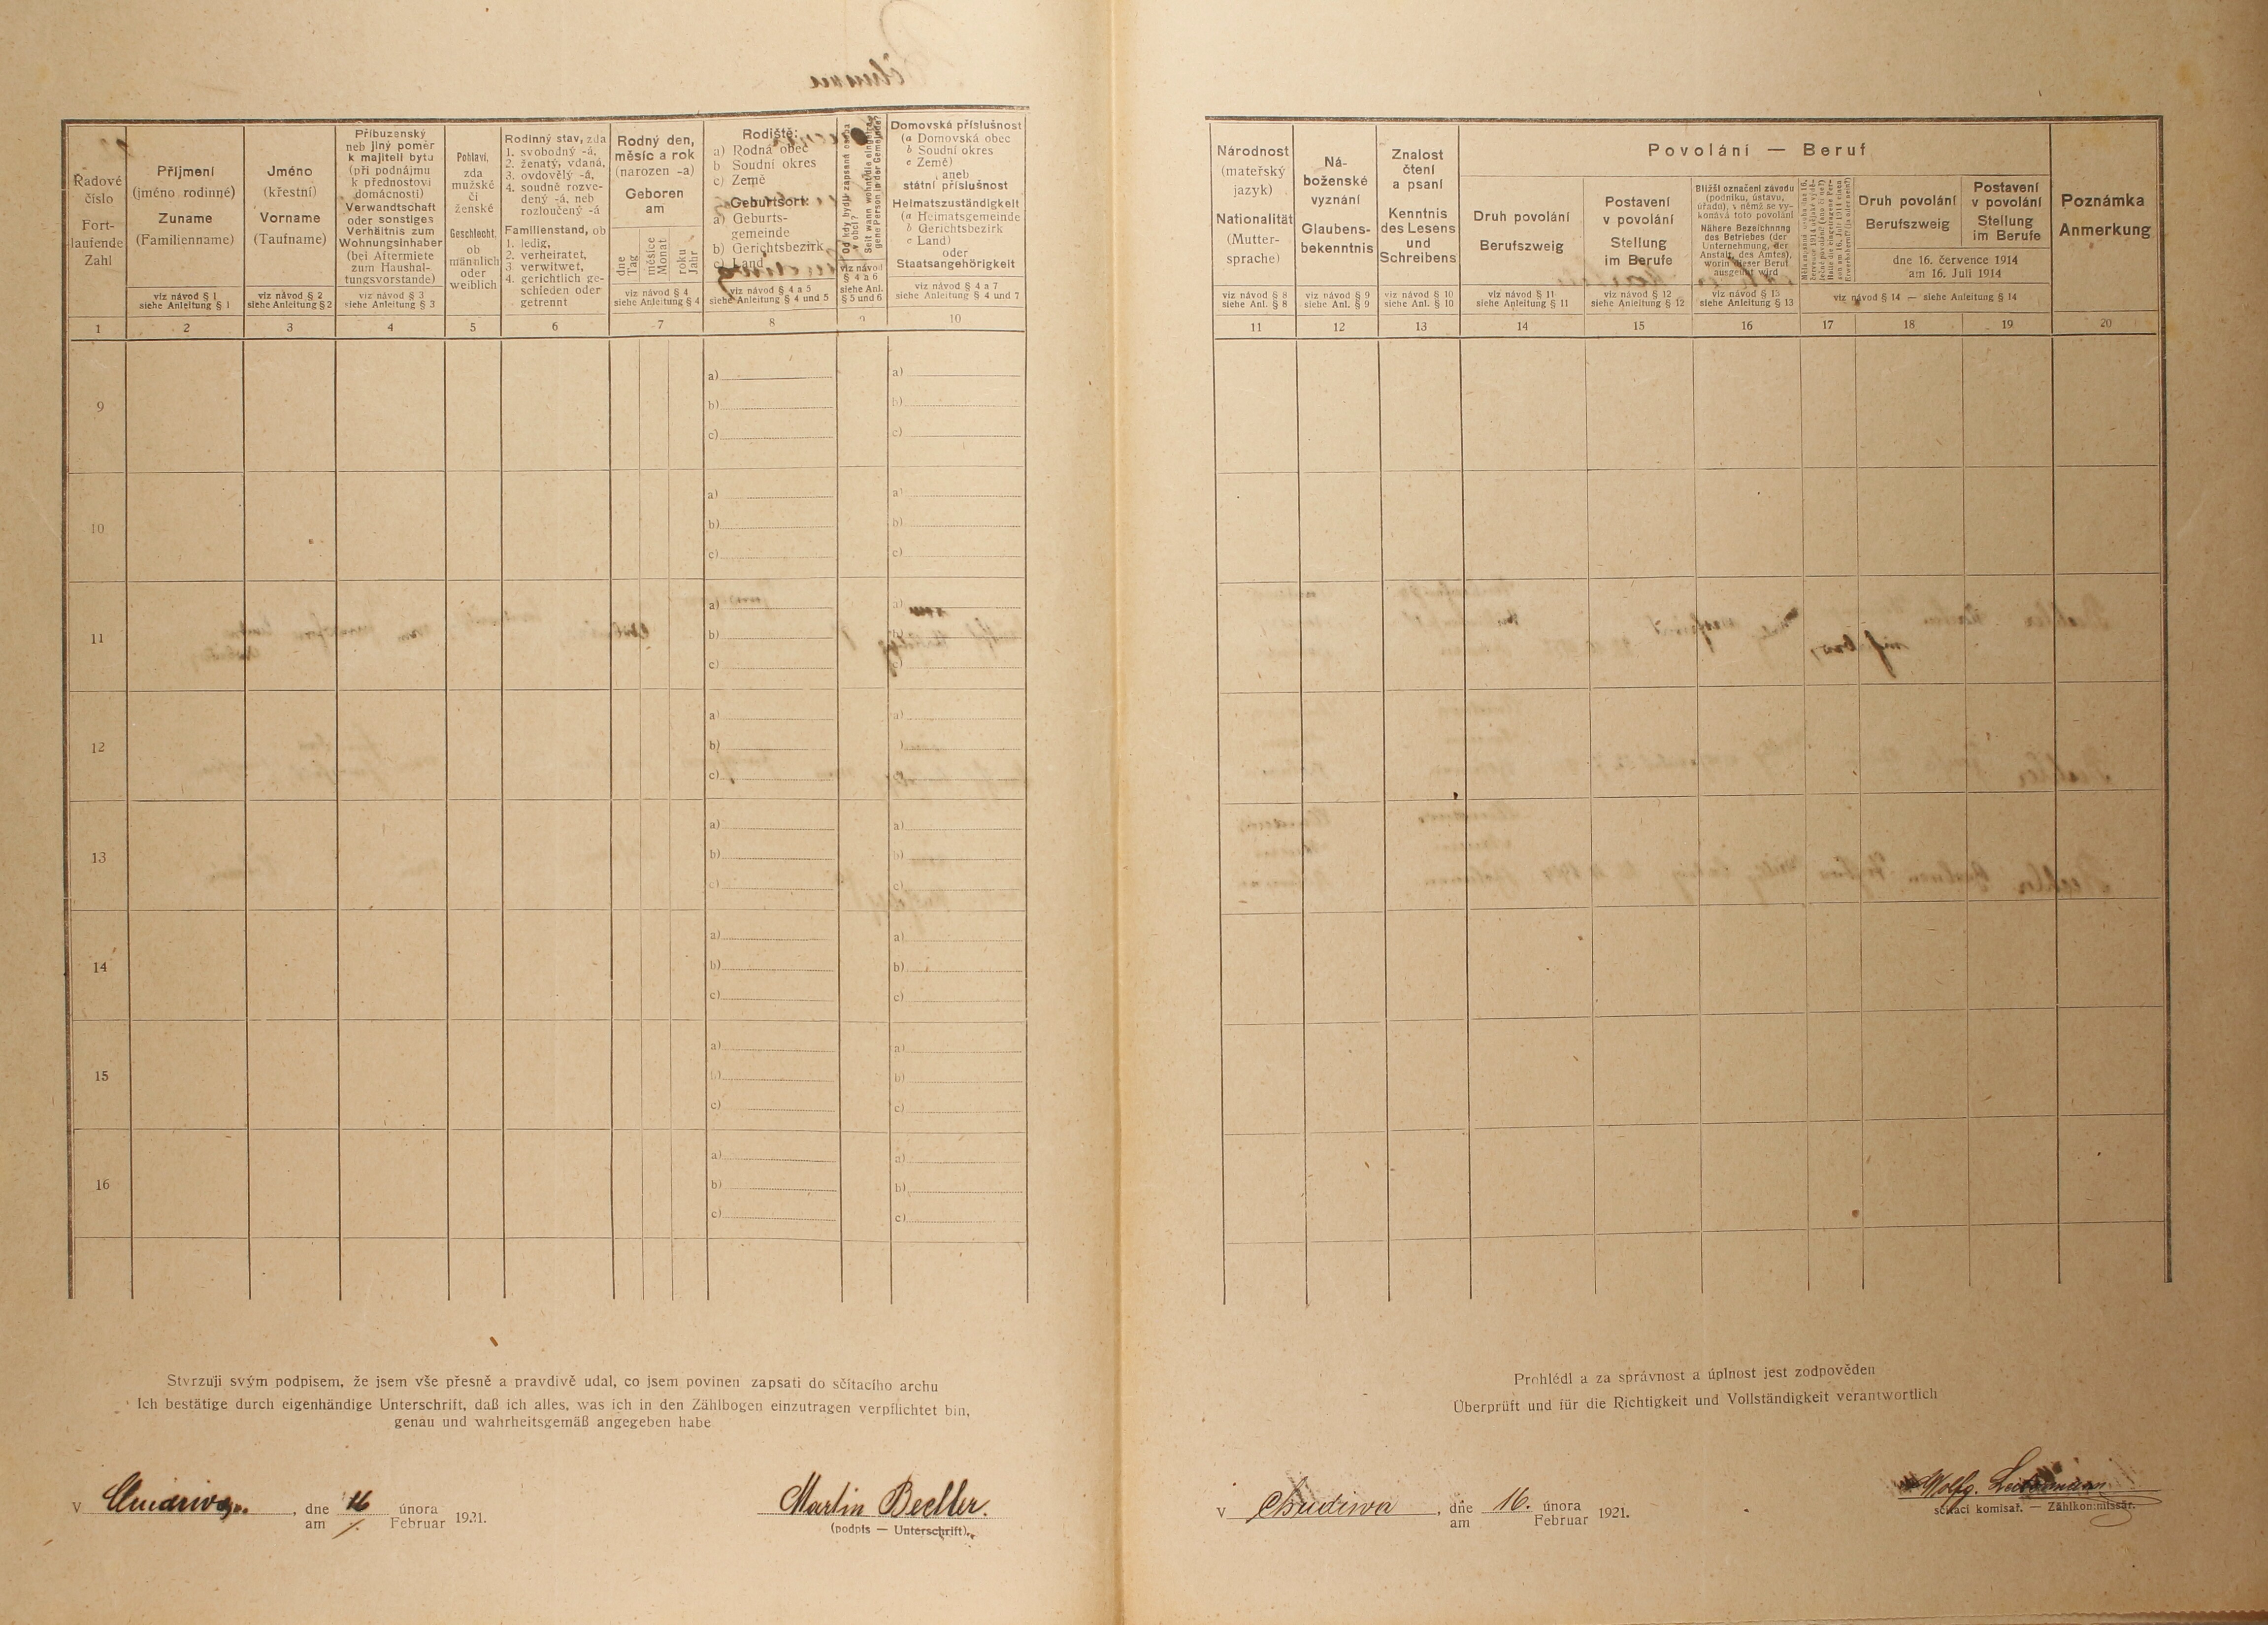 Řadové
číslo
Fort-
laufende
Zahl
Příjmení
(jméno rodinné)
Zuname
(Familienname)
viz návod § 1
siehe Anleitung § 1
Jméno
(křestní)
Vorname
(Taufname)
viz návod § 2
siehe Anleitung § 2
Příbuzenský
neb jiný poměr
k majiteli bytu
(při podnájmu
k přednostovi
domácnosti)
Verwandtschaft
oder sonstiges
Verhältnis zum
Wohnungsinhaber
(bei Aftermiete
zum Haushal-
tungsvorstande)
viz návod § 3
siehe Anleitung § 3
Pohlaví,
zda
mužské
či
ženské
Geschlecht,
ob
männlich
oder
weiblich
Rodinný stav, zda
1. svobodný -á,
2. ženatý, vdaná,
3. ovdovělý -á,
4. soudně rozve-
dený -á, neb
rozloučený -á
Familienstand, ob
1. ledig,
2. verheiratet,
3. verwitwet,
4. gerichtlich ge-
schieden oder
getrennt
Rodný den,
měsíc a rok
(narozen -a)
Geboren
am
dne
Tag
měsíce
Monat
roku
Jahr
viz návod § 4
siehe Anleitung § 4
Rodiště:
a) Rodná obec
b) Soudní okres
c) Země
Geburtsort:
a) Geburts-
gemeinde
b) Gerichtsbezirk
c) Land
viz návod § 4 a 5
siehe Anleitung § 4 und 5
Od kdy bydlí zapsaná osoba
v obci?
Seit wann wohnt die eingetra-
gene Person in der Gemeinde?
viz návod
§ 4 a 6
siehe Anl.
§ 5 und 6
Domovská příslušnost
(a Domovská obec
b Soudní okres
c Země)
aneb
státní příslušnost
Heimatszuständigkeit
(a Heimatsgemeinde
b Gerichtsbezirk
c Land)
oder
Staatsangehörigkeit
viz návod § 4 a 7
siehe Anleitung § 4 und 7
1 2 3 4 5 6 7 8 9 10
9
a) a)
b) b)
c) c)
10
a) a)
b) b)
c) c)
11
a) a)
b) b)
c) c)
12
a) a)
b) b)
c) c)
13
a) a)
b) b)
c) c)
14
a) a)
b) b)
c) c)
15
a) a)
b) b)
c) c)
16
a) a)
b) b)
c) c)
Stvrzuji svým podpisem, že jsem vše přesně a pravdivě udal, co jsem povinen zapsati do sčítacího archu
Ich bestätige durch eigenhändige Unterschrift, daß ich alles, was ich in den Zählbogen einzutragen verpflichtet bin,
genau und wahrheitsgemäß angegeben habe
v dne 16 února
am Februar 1921.
Martin Bechler.
(podpis — Unterschrift).
Národnost
(mateřský
jazyk)
Nationalität
(Mutter-
sprache)
viz návod § 8
siehe Anl. § 8
Ná-
boženské
vyznání
Glaubens-
bekenntnis
viz návod § 9
siehe Anl. § 9
Znalost
čtení
a psaní
Kenntnis
des Lesens
und
Schreibens
viz návod § 10
siehe Anl. § 10
Povolání — Beruf
Druh povolání
Berufszweig
viz návod § 11
siehe Anleitung § 11
Postavení
v povolání
Stellung
im Berufe
viz návod § 12
siehe Anleitung § 12
Bližší označení závodu
(podniku, ústavu,
úřadu), v němž se vy-
konává toto povolání
Nähere Bezeichnung
des Betriebes (der
Unternehmung, der
Anstalt, des Amtes),
worin dieser Beruf
ausgeübt wird
viz návod § 13
siehe Anleitung § 13
Druh povolání
Berufszweig
Postavení
v povolání
Stellung
im Berufe
dne 16. července 1914
am 16. Juli 1914
viz návod § 14 — siehe Anleitung § 14
Poznámka
Anmerkung
11 12 13 14 15 16 17 18 19 20
Prohlédl a za správnost a úplnost jest zodpověden
Überprüft und für die Richtigkeit und Vollständigkeit verantwortlich
v Chudiwa, dne 16. února
am Februar 1921.
Wolfg.
sčítací komisař. — Zählkommissär.